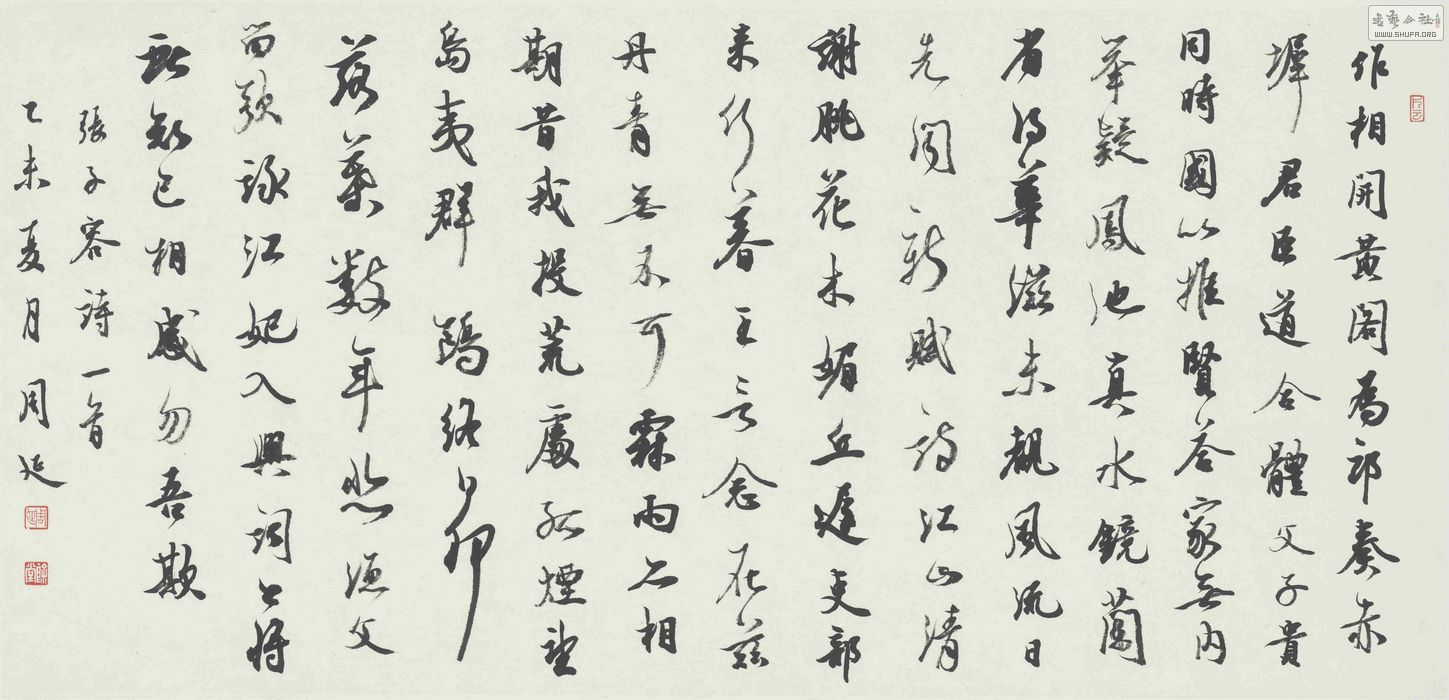 作相開黃閣為郎奏赤
墀君臣道合體父子貴
同時國以推賢答家無内
舉疑鳳池真水鏡蘭
省得華滋未覩風流日
先聞新賦詩江山清
謝朓花木媚丘遲吏部
来何暮王言念在兹
丹青無不可霖雨亦相
期昔我投荒處孤煙望
島夷群鷗終日狎
落葉數年悲漁父
留歌詠江妃入興詞今將
獻知己相感勿吾欺
張子容詩一首
乙未夏月 周延
WWW.SHUFA.ORG